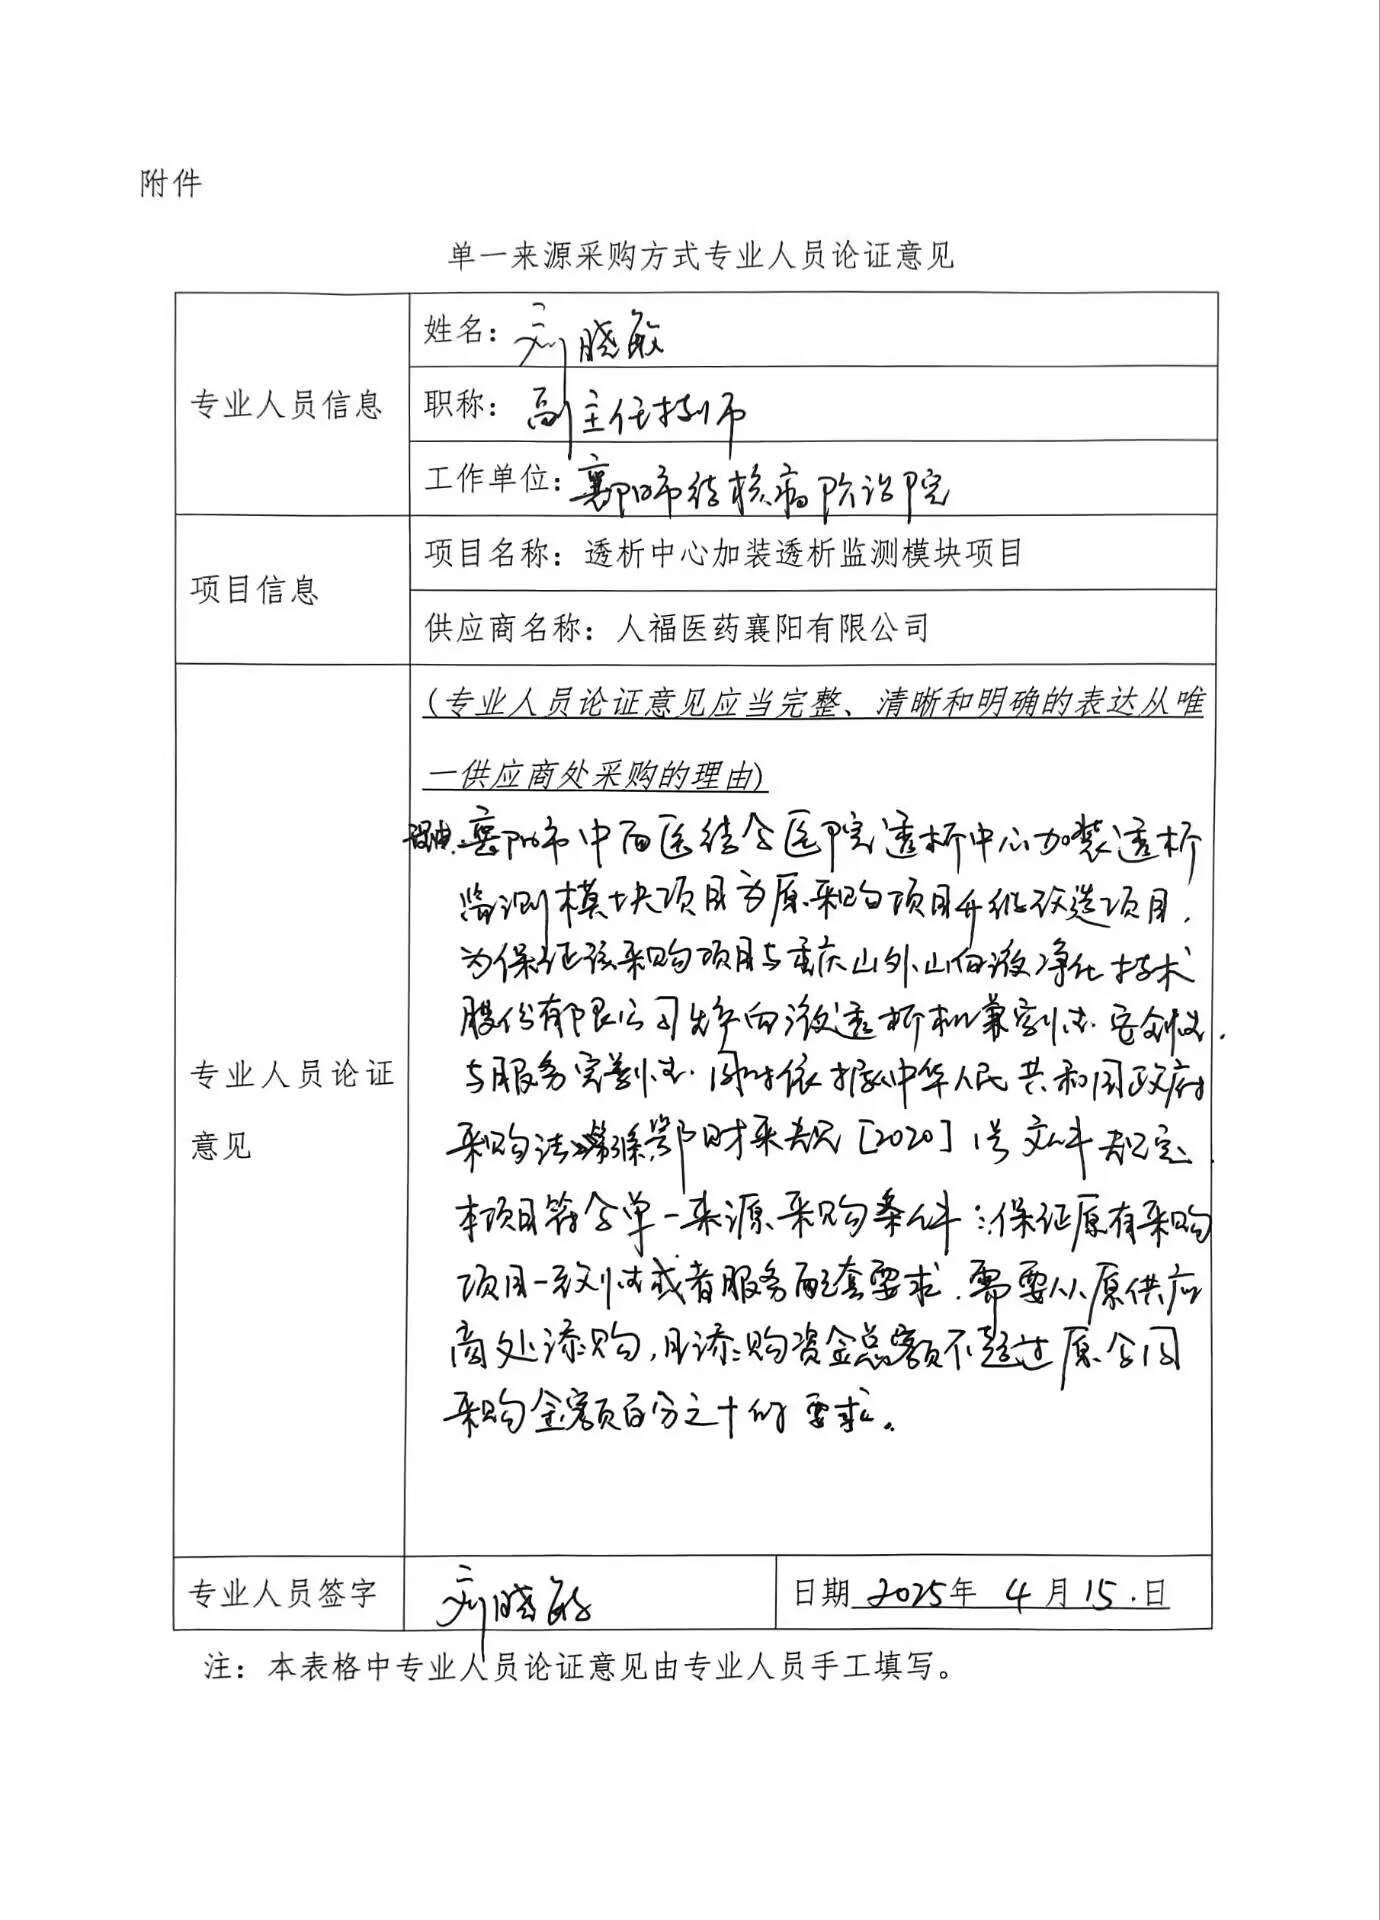 附件
单一来源采购方式专业人员论证意见
专业人员信息
姓名：刘晓敏
职称：副主任技师
工作单位：襄阳市结核病防治院
项目信息
项目名称：透析中心加装透析监测模块项目
供应商名称：人福医药襄阳有限公司
专业人员论证
意见
(专业人员论证意见应当完整、清晰和明确的表达从唯
一供应商处采购的理由)
理由：襄阳市中西医结合医院透析中心加装透析
监测模块项目为原采购项目升级改造项目，
为保证该采购项目与重庆山外山血液净化技术
股份有限公司 血液透析机兼容性、安全性、
与服务完整性、同时依据《中华人民共和国政府
采购法》 鄂财采规[2020]1号文件规定，
本项目符合单一来源采购条件：保证原有采购
项目一致性或者服务配套要求，需要从原供应
商处添购，且添购资金总额不超过原合同
采购金额百分之十的要求。
专业人员签字
刘晓敏
日期 2025年 4 月 15.日
注：本表格中专业人员论证意见由专业人员手工填写。